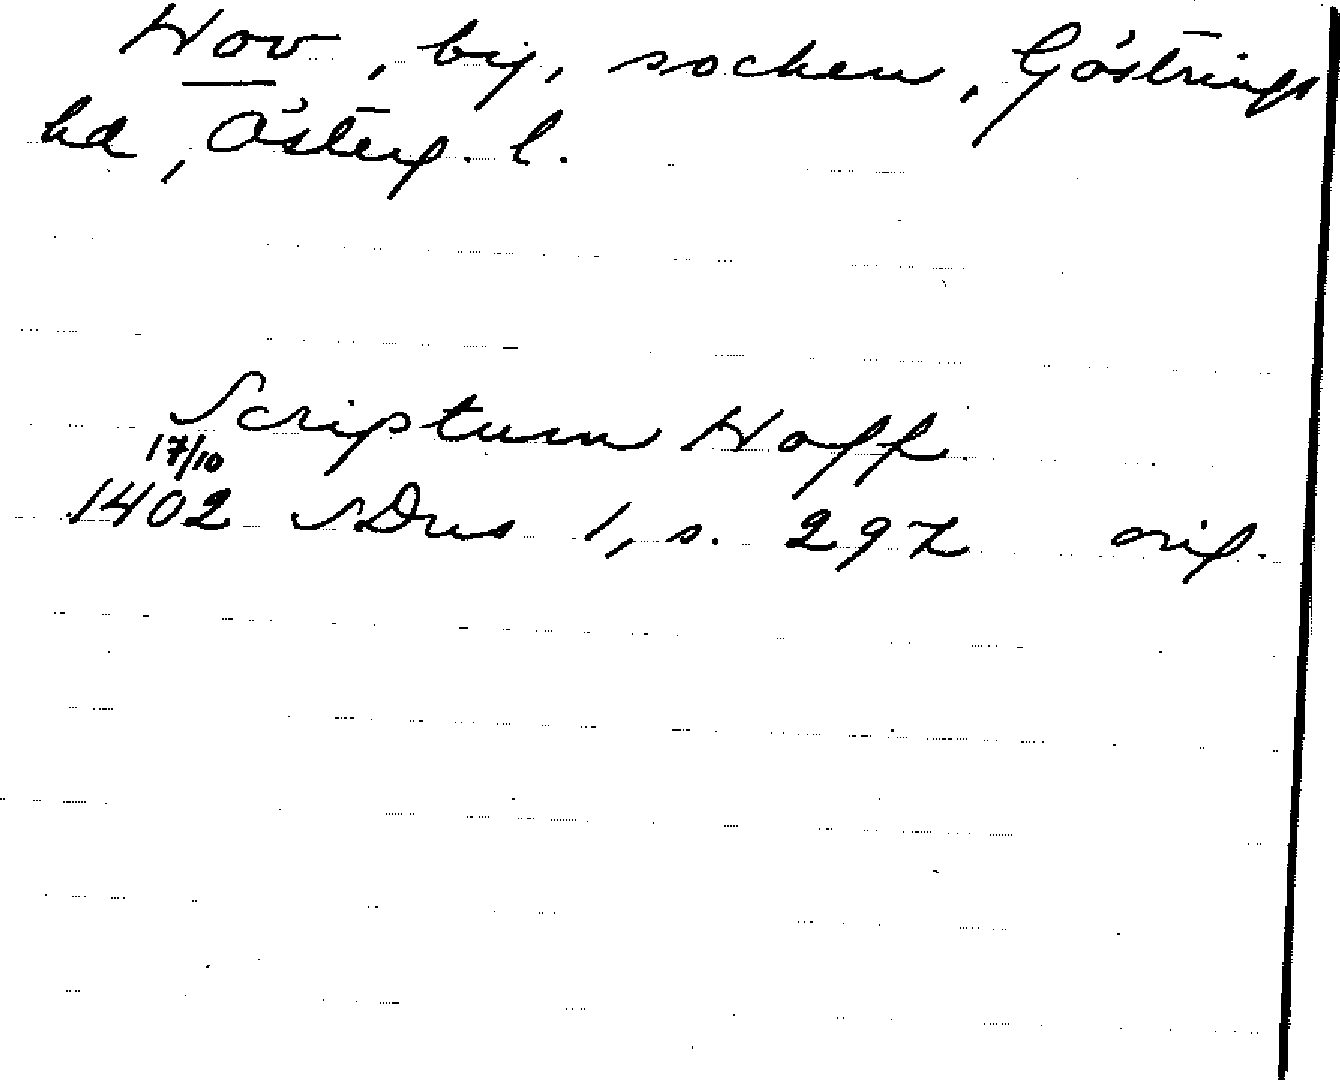 Hov, by, socken, Göstrings
hd, Österg. l.
Scriptum Hoff
17/10
1402 SDns 1, s. 297 orig.